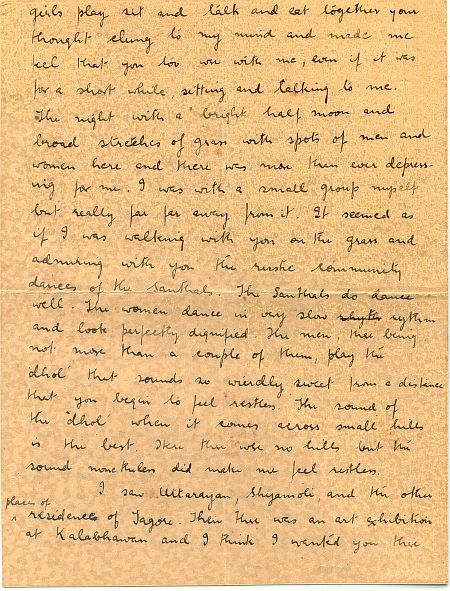 girls play sit and talk and eat together your
thought clung to my mind and made me
feel that you too were with me, even if it was
for a short while, sitting and talking to me.
The night with a bright half moon and
broad stretches of grass with spots of men and
women here and there was more than ever depress-
ing for me. I was with a small group myself
but really far far away from it. It seemed as
if I was walking with you on the grass and
admiring with you the rustic community
dances of the Santhals. The Santhals do dance
well. The women dance in very slow rythm
and look perfectly dignified. The men, there being
not more than a couple of them, play the
'dhol' that sounds so wierdly sweet from a distance
that you begin to feel restless. The sound of
the 'dhol' when it comes across small hills
is the best. Here there were no hills but the
sound nonetheless did make me feel restless.
I saw Uttarayan, Shyamoli, and the other
places of
residence of Tagore. Then there was an art exhibition
at Kalabhawan and I think I wanted you there